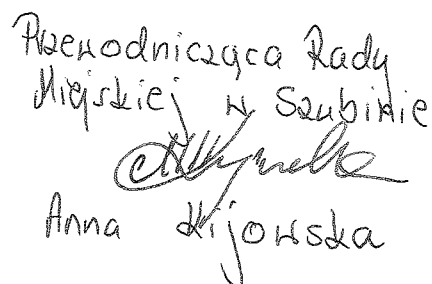 Przewodnicząca Rady
Miejskiej w Szubinie
Anna Kijowska